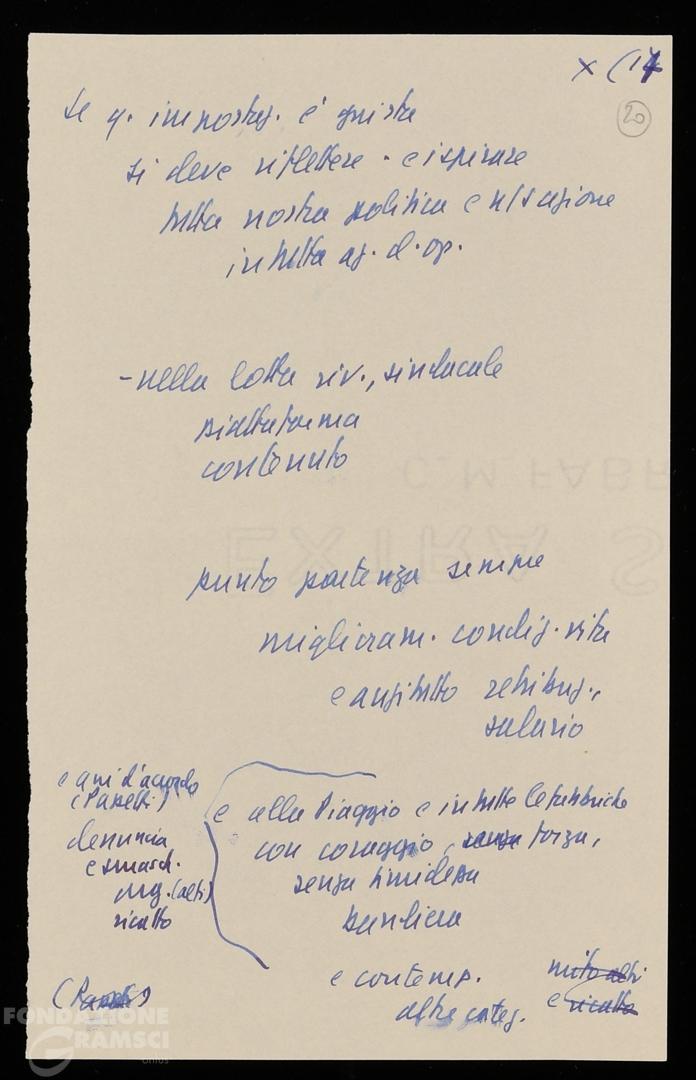 x (14
20
se q. impostaz. è giusta
si deve riflettere - e ispirare
tutta nostra politica e n/s azione
in tutta az. d. op.
- nella lotta riv., sindacale
piattaforma
contenuto
punto partenza sempre
miglioram. condiz. vita
e anzitutto retribuz.,
salario
e qui d'accordo
denuncia
e smasch.
(alti)
ricatto
e alla Piaggio e in tutte le fabbriche
con coraggio, senza forza,
senza timidezza
bandiera
e contemp.
altre categ.
mito alti
e ricatto
FONDAZIONE
GRAMSCI
ONLUS
C.M FABR
EXTRA S